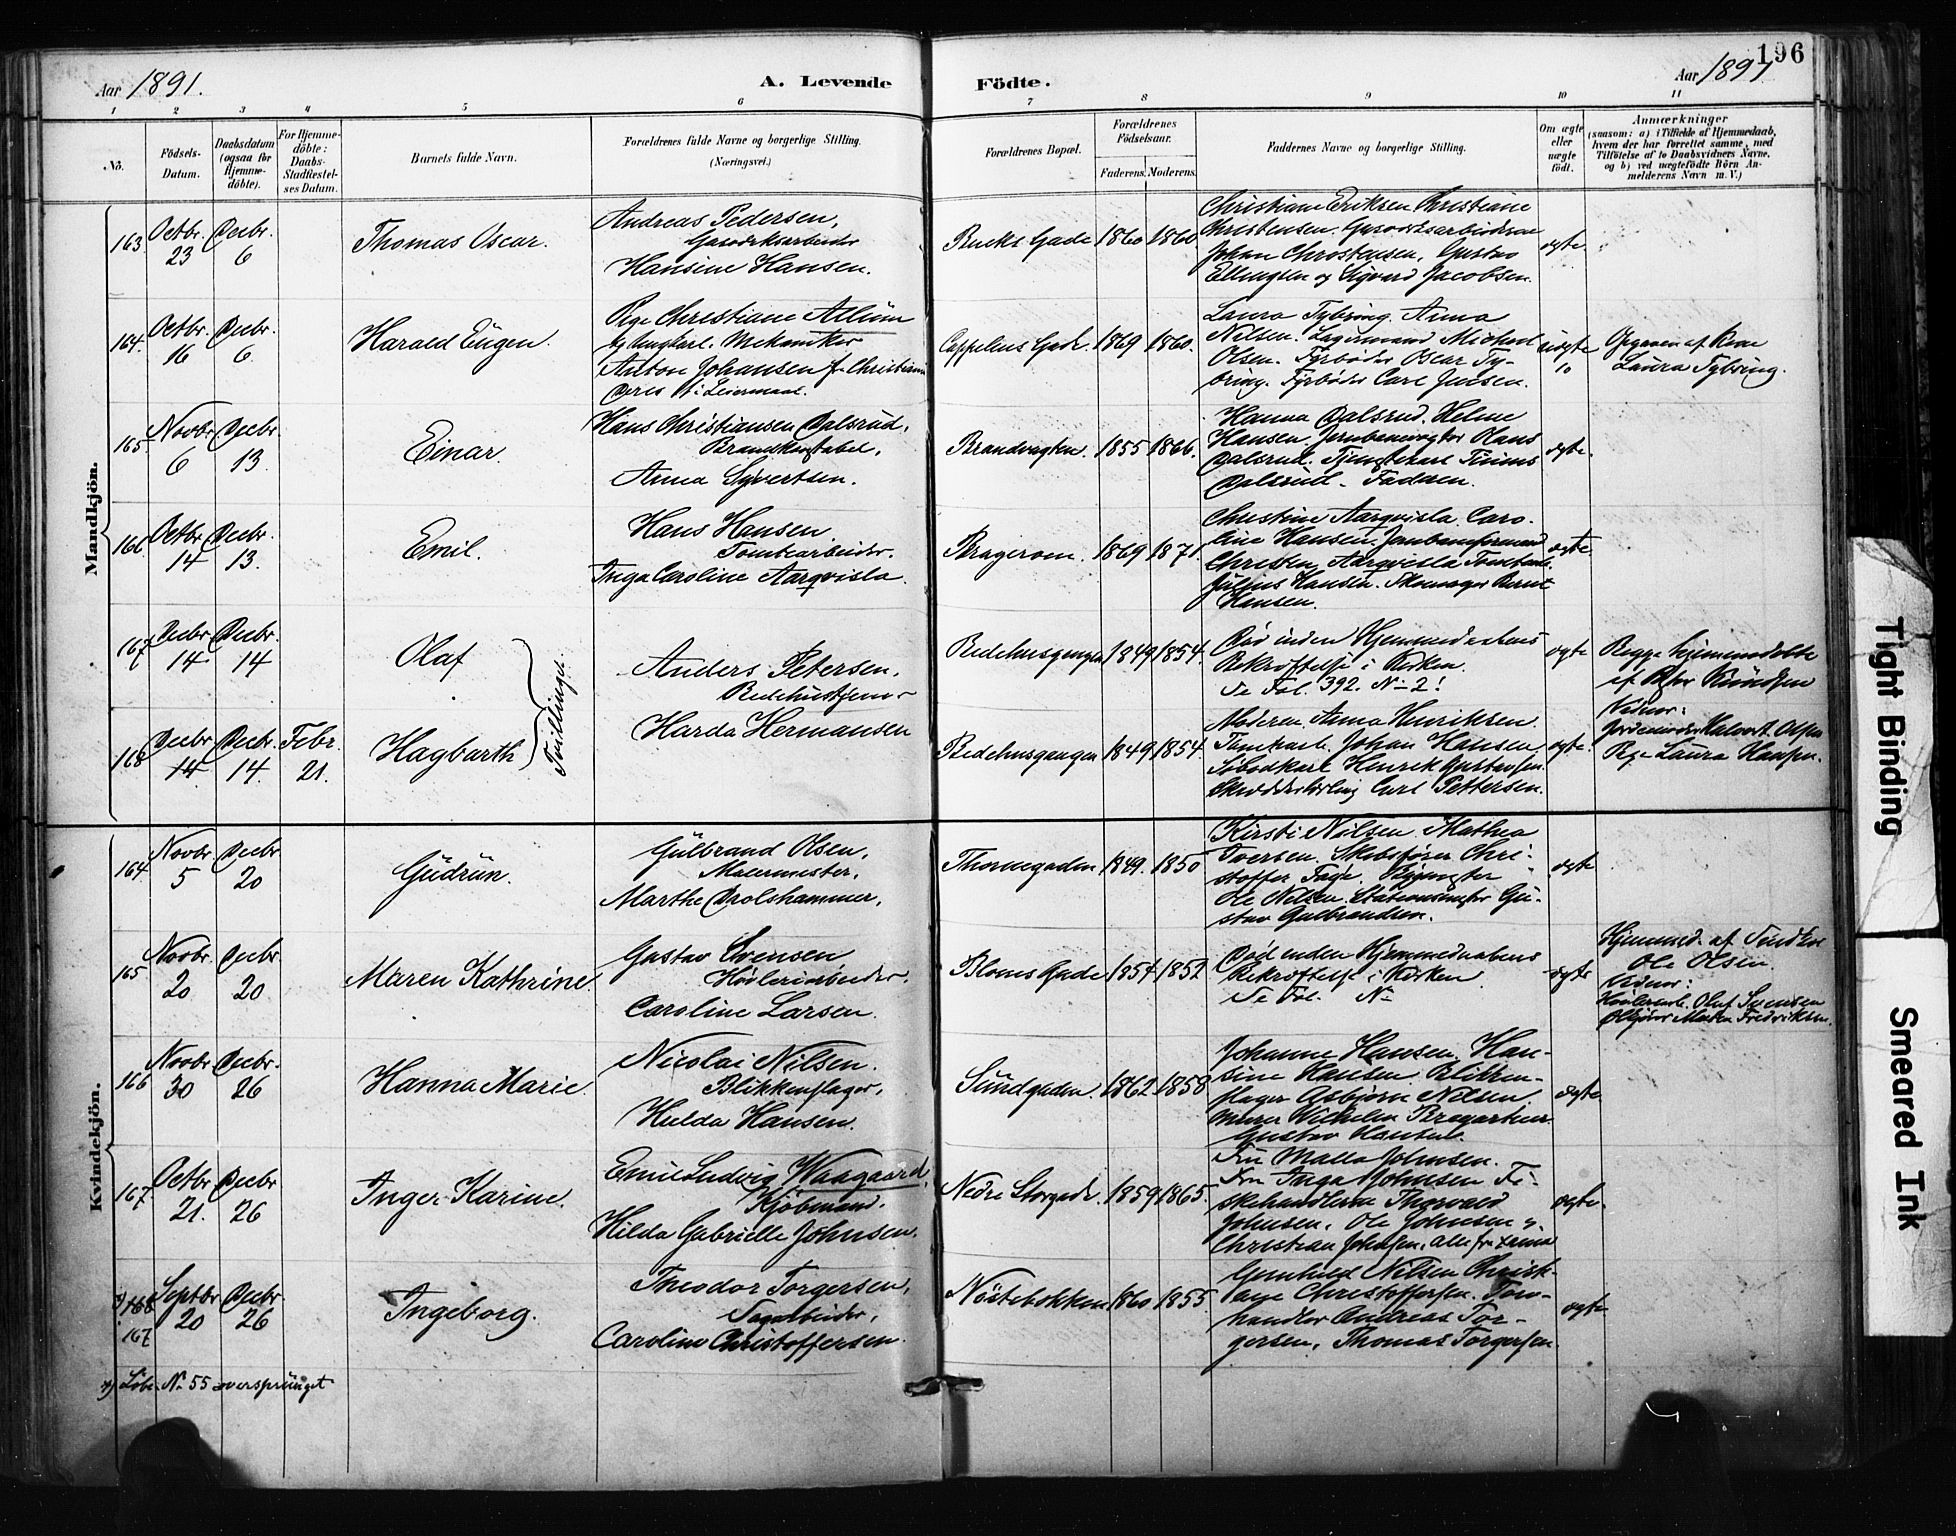 196
Aar 1891.
A. Levende
Födte.
Aar 1891
1 2 3 4 5 6 7 8 9 10 11
No.
Födsels-Datum.
Daabsdatum (ogsaa for Hjemme-döbte).
For Hjemme-döbte: Daabs-Stadfæstel-ses Datum.
Barnets fulde Navn.
Forældrenes fulde Navne og borgerlige Stilling.
(Næringsvei.)
Forældrenes Bopæl.
Forældrenes Födselsaar.
Faderens. Moderens.
Faddernes Navne og borgerlige Stilling.
Om ægte eller uægte födt.
Anmærkninger
(saasom: a) i Tilfælde af Hjemmedaab, hvem der har forrettet samme, med Tilföielse af to Daabsvidners Navne, og b) ved uægtefödte Börn Anmelderens Navn m. V.)
Mandkjön.
163 Octbr. 23 Decbr. 6 Thomas Oscar.
Andreas Pedersen,
Gasværksarbeider
Hansine Hansen.
Bucks Gade 1860 1860
Christiane Eriksen Christiane
Christensen.
Johan Christensen, Gustav
Ellingsen og Sigvard Jacobsen.
ægte
164. Octbr. 16 Decbr. 6. Harald Eugen.
Pige Christiane Allum
og Ungkarl. Mekaniker
Anton Johansen fr Christiania
Deres 1ste Leiermaal.
Cappelens Gade. 1869 1860.
Laura Tybring. Anna
Nilsen. Lagermand Michael
Olsen. Fyrbøder Oscar Ty-
bring. Fyrbøder Carl Jensen.
uægte
Opgiven af Kone
Laura Tybring.
165. Novbr. 6 Decbr. 13. Einar.
Hans Christiansen Dalsrud,
Brandkonstabel,
Anna Syvertsen.
Brandvagten. 1855 1866.
Hanna Dalsrud. Helene
Hansen. Jernbanevogter Hans
Dalsrud. Tjenestekarl
Dalsrud. Faderen.
ægte.
166 Octbr. 14 Decbr. 13. Emil.
Hans Hansen
Tomtearbeider.
Inga Caroline Aarqvisla.
Bragerøen. 1869 1871
Christine Aarqvisla. Caro-
line Hansen. Jernbaneformand
Christen Aarqvisla
Julius Hansen. Skomager Bernt
Hansen.
ægte
167 Decbr 14 Decbr. 14 Olaf
Tvillinger.
Anders Petersen,
Bedehustjener
Harda Hermansen
Bedehusgangen 1849 1854.
Død inden Hjemmedaabens
Bekræftelse i Kirken.
Se Fol. 392. No 2!
ægte
Begge hjemmedøbte
af Knudsen
Vidner:
Jordemoder Olsen
Pige Laura Hansen.
168 Decbr 14 Decbr. 14. Febr. 21. Hagbarth
Bedehusgangen 1849 1854.
Moderen. Anna Henriksen.
Johan Hansen.
Henrik Gustavsen.
Carl Pettersen.
ægte
Kvindekjön.
164 Novbr. 5 Decbr 20 Gudrun.
Gulbrand Olsen,
Malermester,
Marthe Drolshammer.
Thornegaden 1849. 1850
Kirsti Nilsen. Mathea
Iversen. Skibsfører Chri-
stoffer Fage.
Ole Nilsen. Gu-
stav Gulbrandsen.
ægte
165 Novbr. 20 Decbr. 20 Maren Kathrine.
Gustav Svensen
Høvleriarbeider.
Caroline Larsen.
Bloms Gade 1854 1852
Død inden Hjemmedaabens
Bekræftelse i Kirken
Se Fol. No
ægte
Hjemmed. af
Ole Olsen.
Vidner:
Olaf Svensen
Fredriksen.
166 Novbr. 30 Decbr. 26 Hanna Marie.
Nicolai Nilsen.
Blikkenslager,
Hulda Hansen.
Sundgaden. 1862 1858
Johanne Hansen. Han-
sine Hansen. Blikken-
slager Asbjørn Nilsen.
Murer Wilhelm
Gustav
ægte
167 Octbr 21. Decbr 26 Inger Karine.
Emil Ludvig Waagaard,
Kjöbmand,
Hilda Gabrielle Johnsen.
Nedre Storgade. 1859 1865.
Fru Malla Johnsen.
Fru Inga Johnsen Fi-
skehandlerne Thorvald
Johnsen, Ole Johnsen og
Christian Johnsen, alle fra
ægte.
*) 168 167 Septbr 20 Decbr 26 Ingeborg.
Theodor Torgersen,
Sagarbeider,
Caroline Christoffersen.
Nöstebakken 1860 1855.
Gunhild Nilsen Christ-
iane Christoffersen.
handler Andreas Tor-
gersen, Thomas Torgersen.
ægte
*) Løbe No 55 oversprunget
Tight Binding
Smeared Ink